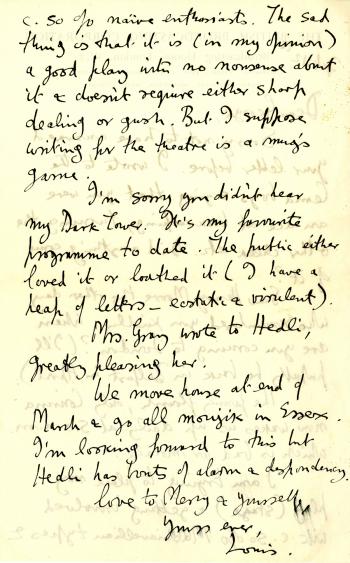 c. 50 % naïve enthusiasts. The sad
thing is that it is (in my opinion)
a good play with no nonsense about
it & doesn't require either sharp
dealing or gush. But I suppose
writing for the theatre is a mug's
game.
I'm sorry you didn't hear
my Dark Tower. It's my favourite
programme to date. The public either
loved it or loathed it (I have a
heap of letters – ecstatic & virulent).
Mrs. Gray wrote to Hedli,
greatly pleasing her.
We move house at end of
March & go all moujik in Essex.
I'm looking forward to this but
Hedli has bouts of alarm & despondency.
Love to Mercy & yourself,
yours ever,
Louis.